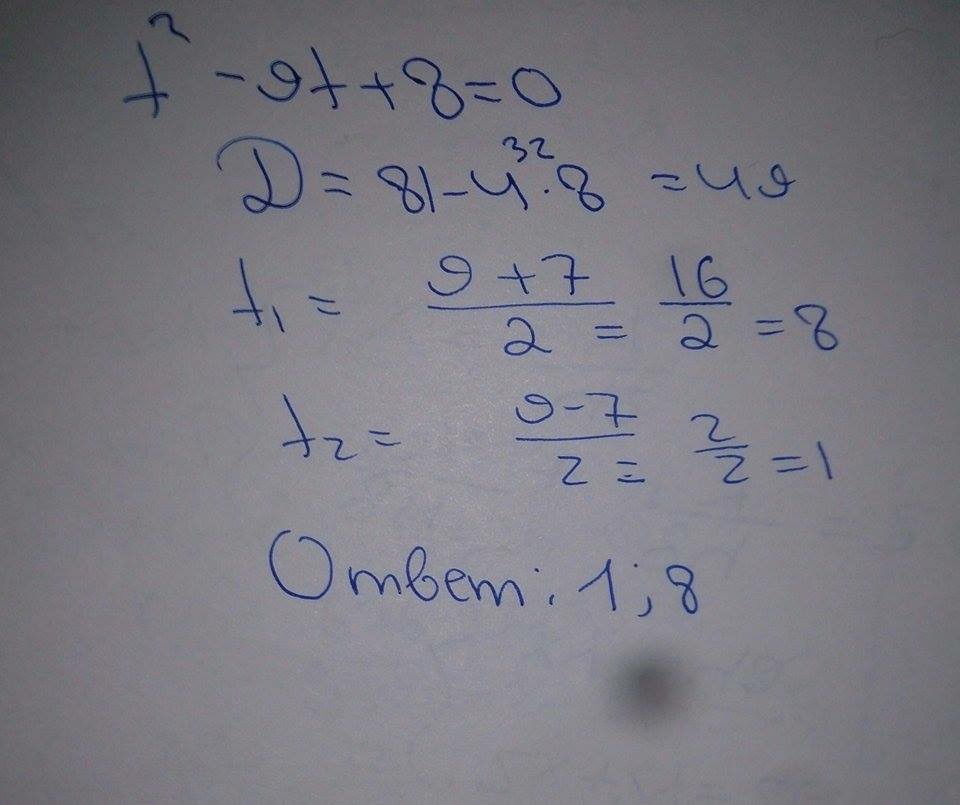 t² - 9t + 8 = 0
D = 81 - 4 · 8 = 49
32
t₁ = 9 + 7 / 2 = 16 / 2 = 8
t₂ = 9 - 7 / 2 = 2 / 2 = 1
Ответ: 1; 8